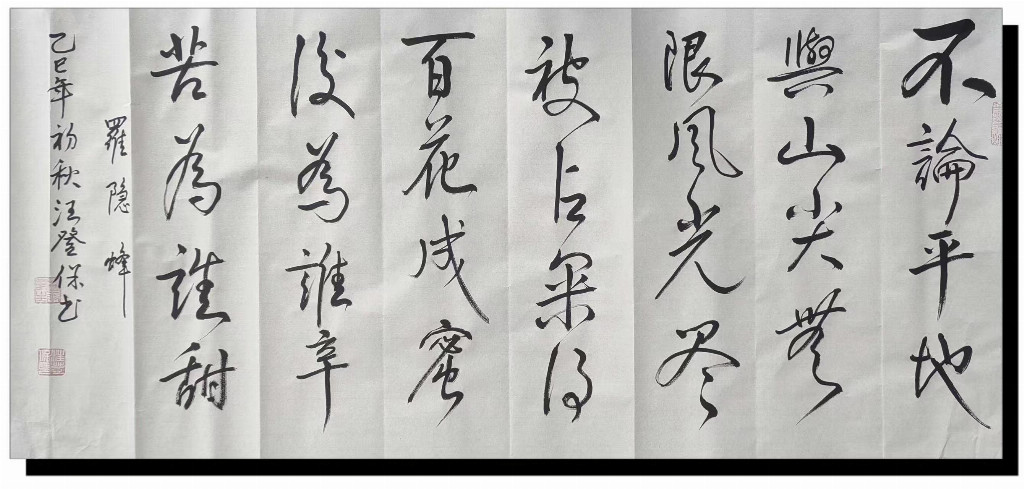 不論平地
與山尖無
限風光尽
被占采得
百花成蜜
後為誰辛
苦為誰甜
羅隐蜂
乙巳年初秋汪登保书